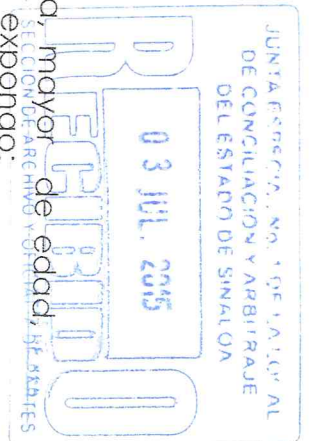 JUNTA ESPECIAL No. 1 DE LA LOCAL
DE CONCILIACION Y ARBITRAJE
DEL ESTADO DE SINALOA
03 JUL. 2015
RECIBIDO
SECCION DE ARCHIVO Y OFICIALIA DE PARTES
a, mayor de edad,
expongo: